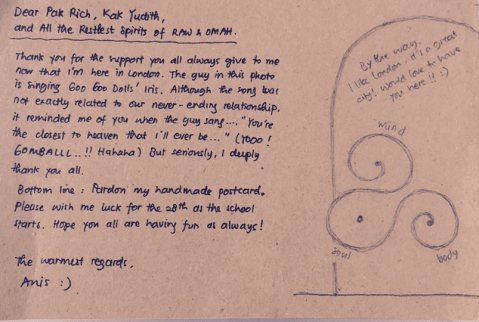 Dear Pak Rich, Kak Yudith,
and All the Restless Spirits of RAW & OMAH.
Thank you for the support you all always give to me
now that I'm here in London. The guy in this photo
is singing Goo Goo Dolls' Iris. Although the song was
not exactly related to our never-ending relationship,
it reminded me of you when the guy sang.... "You're
the closest to heaven that I'll ever be..." (YOOO!
GOMBALLL..!! Hahaha) But seriously, I deeply
thank you all.
Bottom line: Pardon my handmade postcard.
Please wish me luck for the 28th as the school
starts. Hope you all are having fun as always!
The warmest regards,
Anis :)
By the way,
I like London. It's a great
city! Would love to have
you here!! :)
mind
soul
body